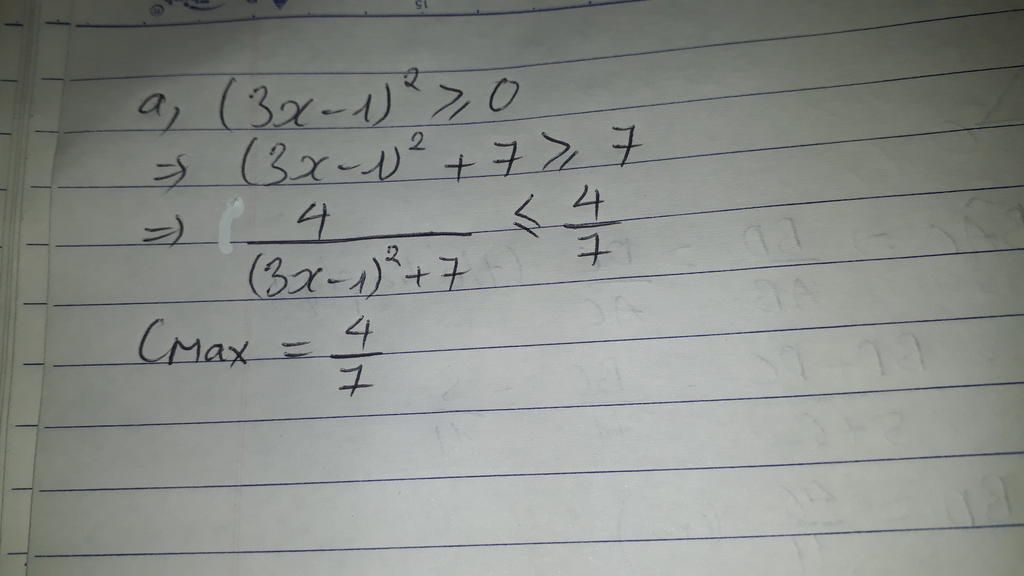 a, (3x-1)² ≥ 0
⇒ (3x-1)² + 7 ≥ 7
⇒ 4/((3x-1)²+7) ≤ 4/7
CMax = 4/7